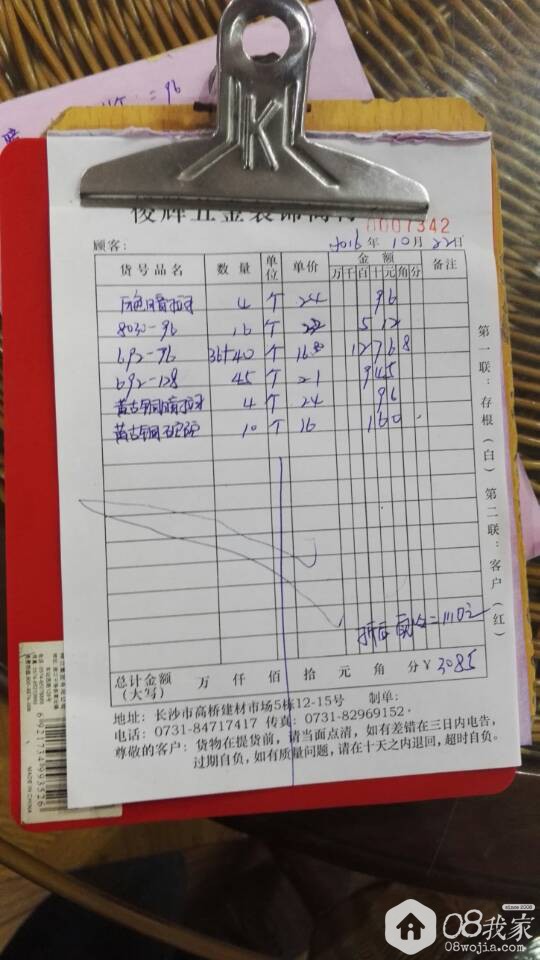 = 96
K
俊辉五金装饰商行
0007342
顾客： 2016年10月22日
货号品名 数量 单位 单价 金额 备注
万千百十元角分
4 个 24 96
8030-96 16 个 32 512
692-96 36+40 个 16.8 1276.8
692-128 45 个 21 945
黄古铜 4 个 24 96
黄古铜 10 个 16 160
折后 =1110元
总计金额（大写） 万 仟 佰 拾 元 角 分 ¥ 3085
地址：长沙市高桥建材市场5栋12-15号 制单：
电话：0731-84717417 传真：0731-82969152.
尊敬的客户：货物在提货前，请当面点清，如有差错在三日内电告，
过期自负，如有质量问题，请在十天之内退回，超时自负。
第一联：存根（白） 第二联：客户（红）
6921774993526
MADE IN CHINA
08我家
since 2008
08wojia.com